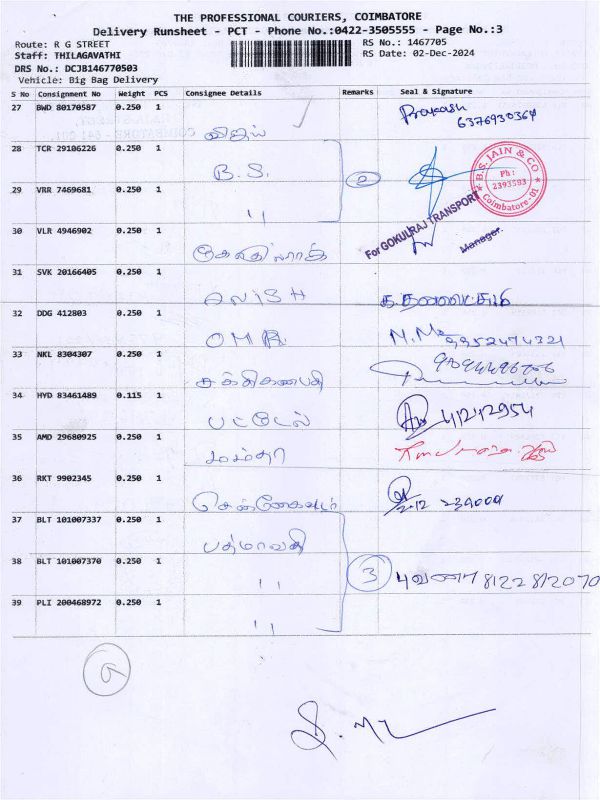 THE PROFESSIONAL COURIERS, COIMBATORE
Delivery Runsheet - PCT - Phone No.:0422-3505555 - Page No.:3
Route: R G STREET
RS No.: 1467705
Staff: THILAGAVATHI
RS Date: 02-Dec-2024
DRS No.: DCJB146770503
Vehicle: Big Bag Delivery
S No Consignment No Weight PCS Consignee Details Remarks Seal & Signature
27 BWD 80170587 0.250 1
விஜய்
Prakash
6376930364
28 TCR 29106226 0.250 1
B.S.
2
B.S. JAIN & CO
Ph:
2393583
Coimbatore-01
29 VRR 7469681 0.250 1
"
For GOKULRAJ TRANSPORT
Manager
30 VLR 4946902 0.250 1
31 SVK 20166405 0.250 1
32 DDG 412803 0.250 1
9952474321
33 NKL 8304307 0.250 1
சக்திகணபதி
34 HYD 83461489 0.115 1
பட்டேல்
35 AMD 29680925 0.250 1
மம்தா
36 RKT 9902345 0.250 1
37 BLT 101007337 0.250 1
பத்மாவதி
38 BLT 101007370 0.250 1
"
3
புவனா 8122812070
39 PLI 200468972 0.250 1
"